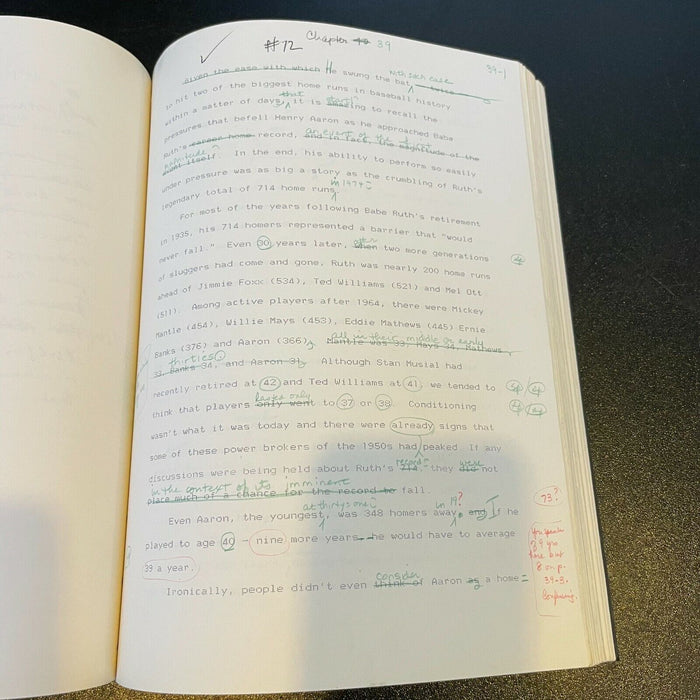 #72 Chapter 39
39-1
Given the ease with which He swung the bat with such ease
to hit two of the biggest home runs in baseball history
within a matter of days, that it is hard to recall the
pressures that befell Henry Aaron as he approached Babe
Ruth's career home record, an event of the first
and in fact, the magnitude of the
magnitude
event itself. In the end, his ability to perform so easily
under pressure was as big a story as the crumbling of Ruth's
legendary total of 714 home runs in 1974.
For most of the years following Babe Ruth's retirement
in 1935, his 714 homers represented a barrier that "would
never fall." Even 30 years later, when after two more generations
of sluggers had come and gone, Ruth was nearly 200 home runs
ahead of Jimmie Foxx (534), Ted Williams (521) and Mel Ott
(511). Among active players after 1964, there were Mickey
Mantle (454), Willie Mays (453), Eddie Mathews (445) Ernie
Banks (376) and Aaron (366), all in their middle or early
Mantle was 33, Mays 34, Mathews
thirties.
33, Banks 34, and Aaron 31. Although Stan Musial had
recently retired at 42 and Ted Williams at 41, we tended to
think that players only went to 37 or 38. Conditioning
wasn't what it was today and there were already signs that
some of these power brokers of the 1950s had peaked. If any
discussions were being held about Ruth's 714, record they did were not
in the context of its imminent
place much of a chance for the record to fall.
Even Aaron, the youngest, at thirty one was 348 homers away. in 19? and If he
played to age 40 - nine more years - he would have to average
39 a year.
Ironically, people didn't even think of consider Aaron as a home=
sp
73?
You speak
39 yrs
here but
8 on p.
39-3.
Confusing.